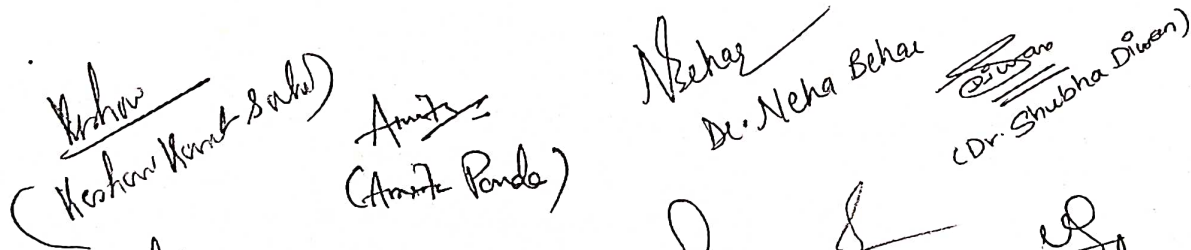 Keshav
(Keshav Kant Sahu)
Amita
(Amita Panda)
NBehar
Dr. Neha Behar
Diwan
(Dr. Shubha Diwan)